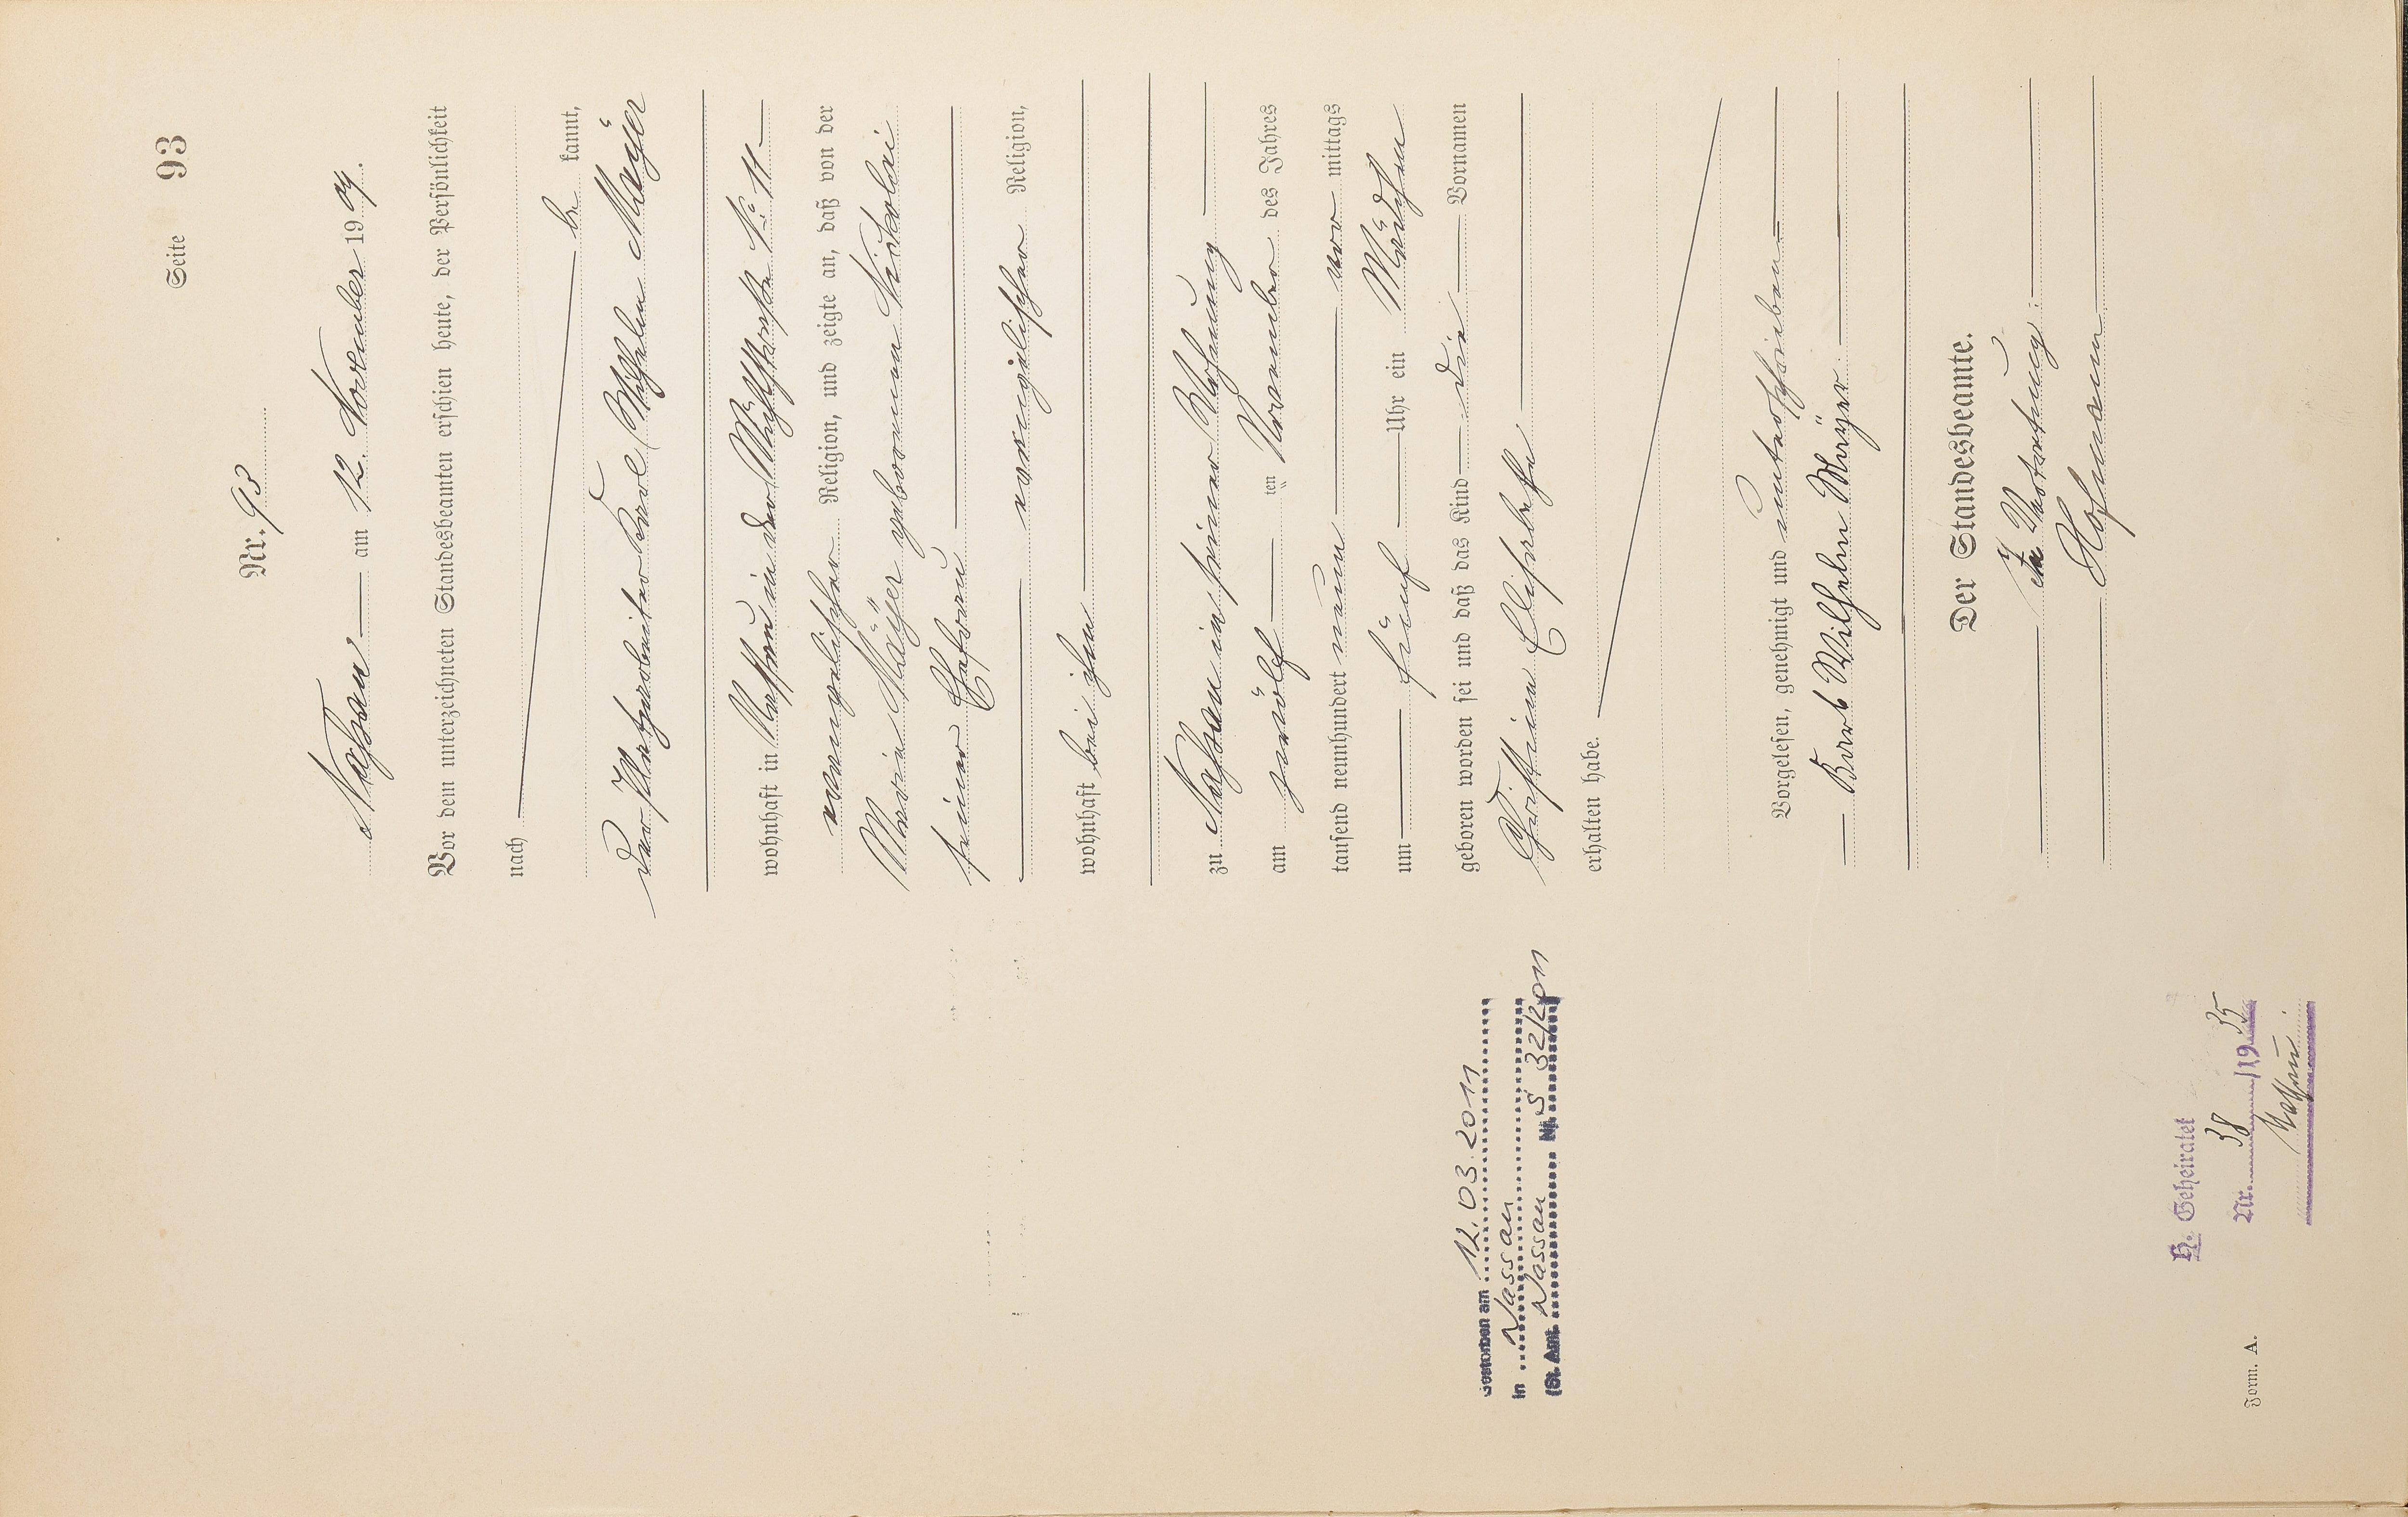 Seite 93
Nr. 93
Nassau am 12. November 1909.
Vor dem unterzeichneten Standesbeamten erschien heute, der Persönlichkeit
nach
be kannt,
der Karl Wilhelm Mayer
wohnhaft in Nassau in der No 11
evangelischer Religion, und zeigte an, daß von der
Maria Mayer geborenen
seiner Ehefrau
evangelischer Religion,
wohnhaft bei ihm
zu Nassau in seiner Wohnung
am zwölf ten November des Jahres
tausend neunhundert neun vor mittags
um fünf Uhr ein Mädchen
geboren worden sei und daß das Kind die Vornamen
Christine Elisabeth
erhalten habe.
Vorgelesen, genehmigt und unterschrieben
Karl Wilhelm Mayer
Der Standesbeamte.
In Vertretung:
Hofmann
Gestorben am 12.03.2011
in Nassau
(St. Amt. Nassau Nr. S 32/2011
H. Geheiratet
Nr. 38/1935
Nassau.
Form. A.